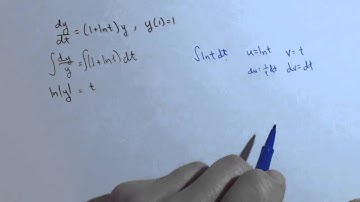 dy/dt = (1+lnt)y , y(1)=1
∫ dy/y = ∫(1+lnt) dt
ln|y| = t
∫lnt dt u=lnt v=t
du=1/t dt dv=dt